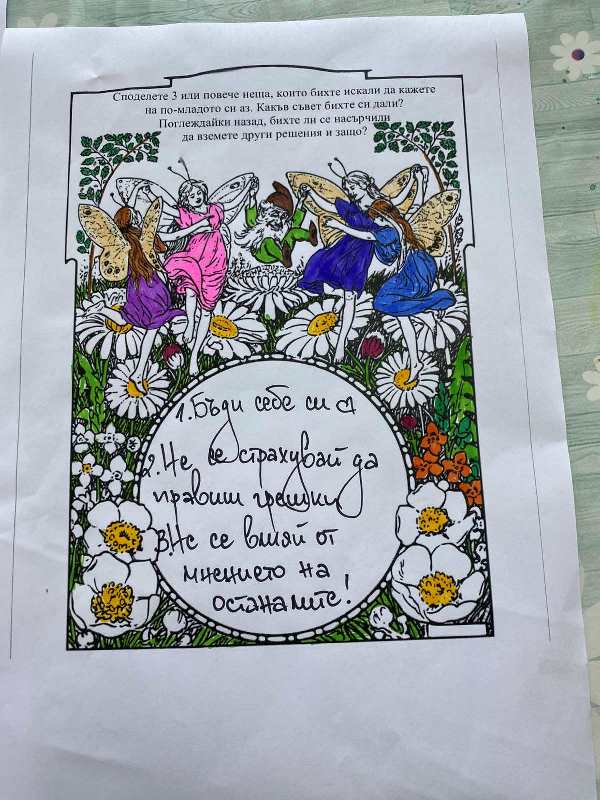 Споделете 3 или повече неща, които бихте искали да кажете
на по-младото си аз. Какъв съвет бихте си дали?
Поглеждайки назад, бихте ли се насърчили
да вземете други решения и защо?
1. Бъди себе си
2. Не се страхувай да
правиш грешки
3. Не се влияй от
мнението на
останалите!